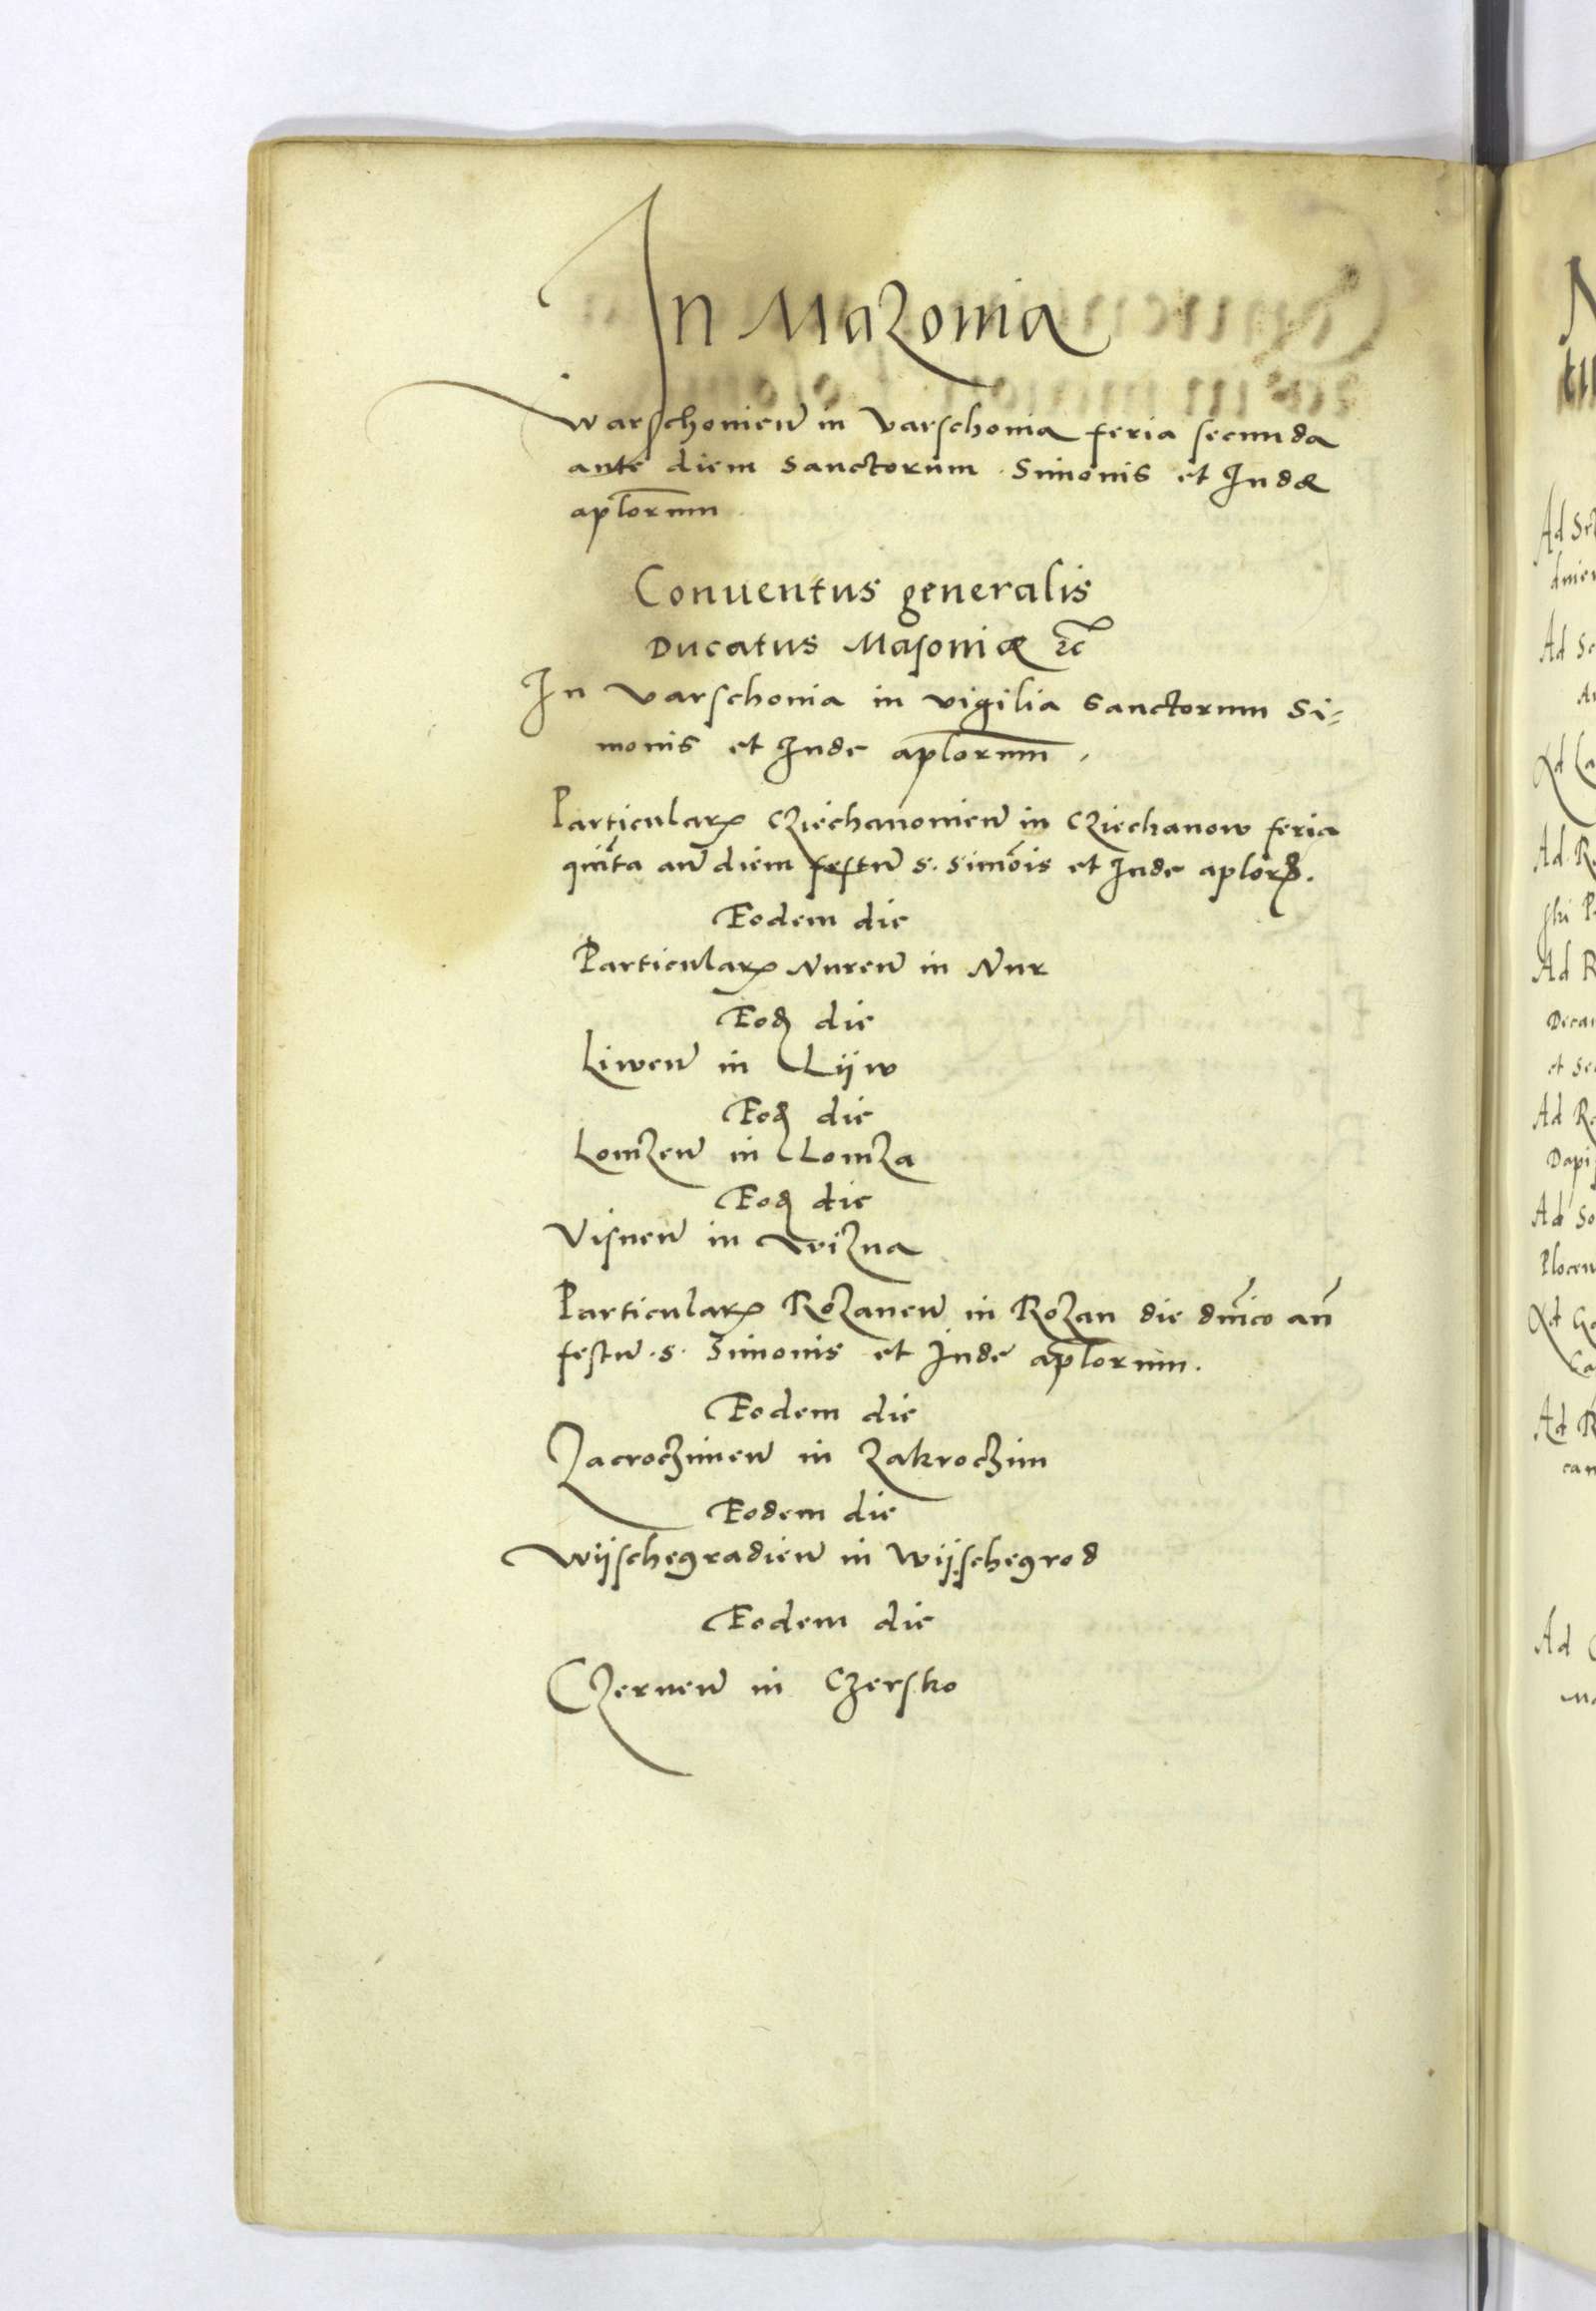 In Mazouia
Warschouien̄ in Varschouia feria secunda
ante diem Sanctorum Simonis et Iudæ
apl̄orum
Conuentus generalis
Ducatus Masouiæ ꝛc̄
In Varschouia in vigilia Sanctorum Si⸗
monis et Iude apl̄orum .
Particularꝭ Cziechanouien̄ in Cziechanow feria
quīta an̄ diem festū s. Simōis et Iude aplorꝝ.
Eodem die
Particularꝭ Nuren̄ in Nur
Eoꝫ die
Liwen̄ in Lijw
Eoꝫ die
Lomzen̄ in Lomza
Eoꝫ die
Visnen̄ in Wizna
Particularꝭ Rozanen̄ in Rozan die dn̄ico an̄
festū .s. Simonis et Iude apl̄orum.
Eodem die
Zacroczimen̄ in Zakroczim
Eodem die
Wijschegradien̄ in Wijschegrod
Eodem die
Czernen̄ in Czersko
Ad
Ad
Ad
Ad
Ad
Ad
Ad
Ad
Ad
Ad